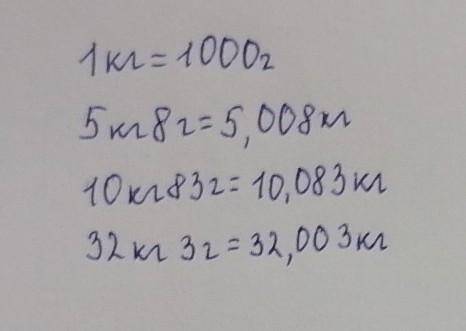 1кг=1000г
5кг8г=5,008кг
10кг83г=10,083кг
32кг 3г=32,003кг